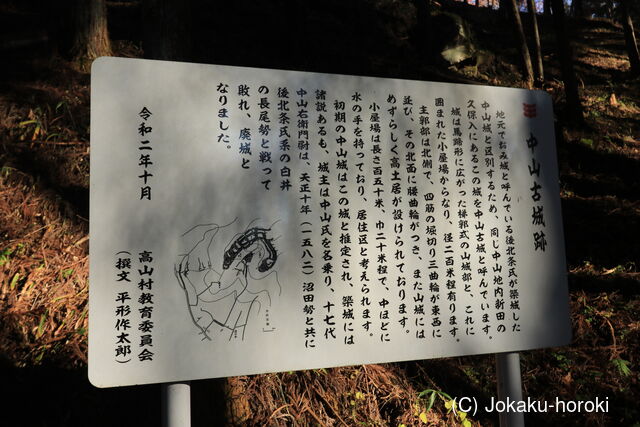 中山古城跡
地元でお城と呼んでいる後北条氏が築城した
中山城と区別するため、同じ中山地内新田の
久保入にあるこの城を中山古城と呼んでいます。
城は馬蹄形に広がった梯郭式の山城部と、これに
囲まれた小屋場からなり、径二百米程有ります。
主郭部は北側で、四筋の堀切り三曲輪が東西に
並び、その北面に腰曲輪がつき、また山城には
めずらしく高土居が設けられております。
小屋場は長さ百五十米、巾二十米程で、中ほどに
水の手を持っており、居住区と考えられます。
初期の中山城はこの城と推定され、築城には
諸説あるも、城主は中山氏を名乗り、十七代
中山右衛門尉は、天正十年(一五八二)沼田勢と共に
後北条氏系の白井
の長尾勢と戦って
敗れ、廃城と
なりました。
令和二年十月
高山村教育委員会
(撰文 平形作太郎)
(C) Jokaku-horoki